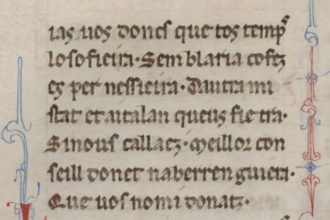 ias uos doncs que tos temps
lo sofieira· Semblaria cofez
ez per nessieira· Dautra mi
stat et aitalan queus fie tra·
Si nous callatz· Meillor con
seill donet na berrengueira·
Que uos no mi donatz·